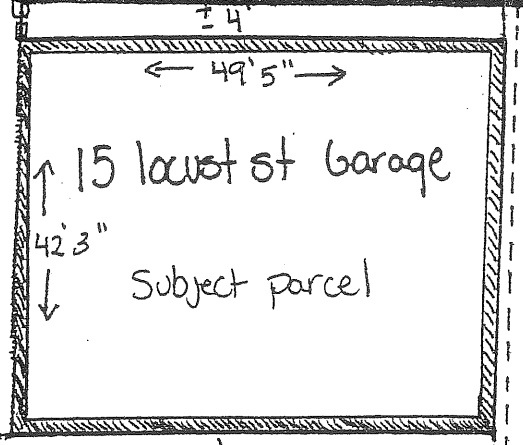 ± 4'
← 49'5" →
15 locust st Garage
42'3"
Subject parcel